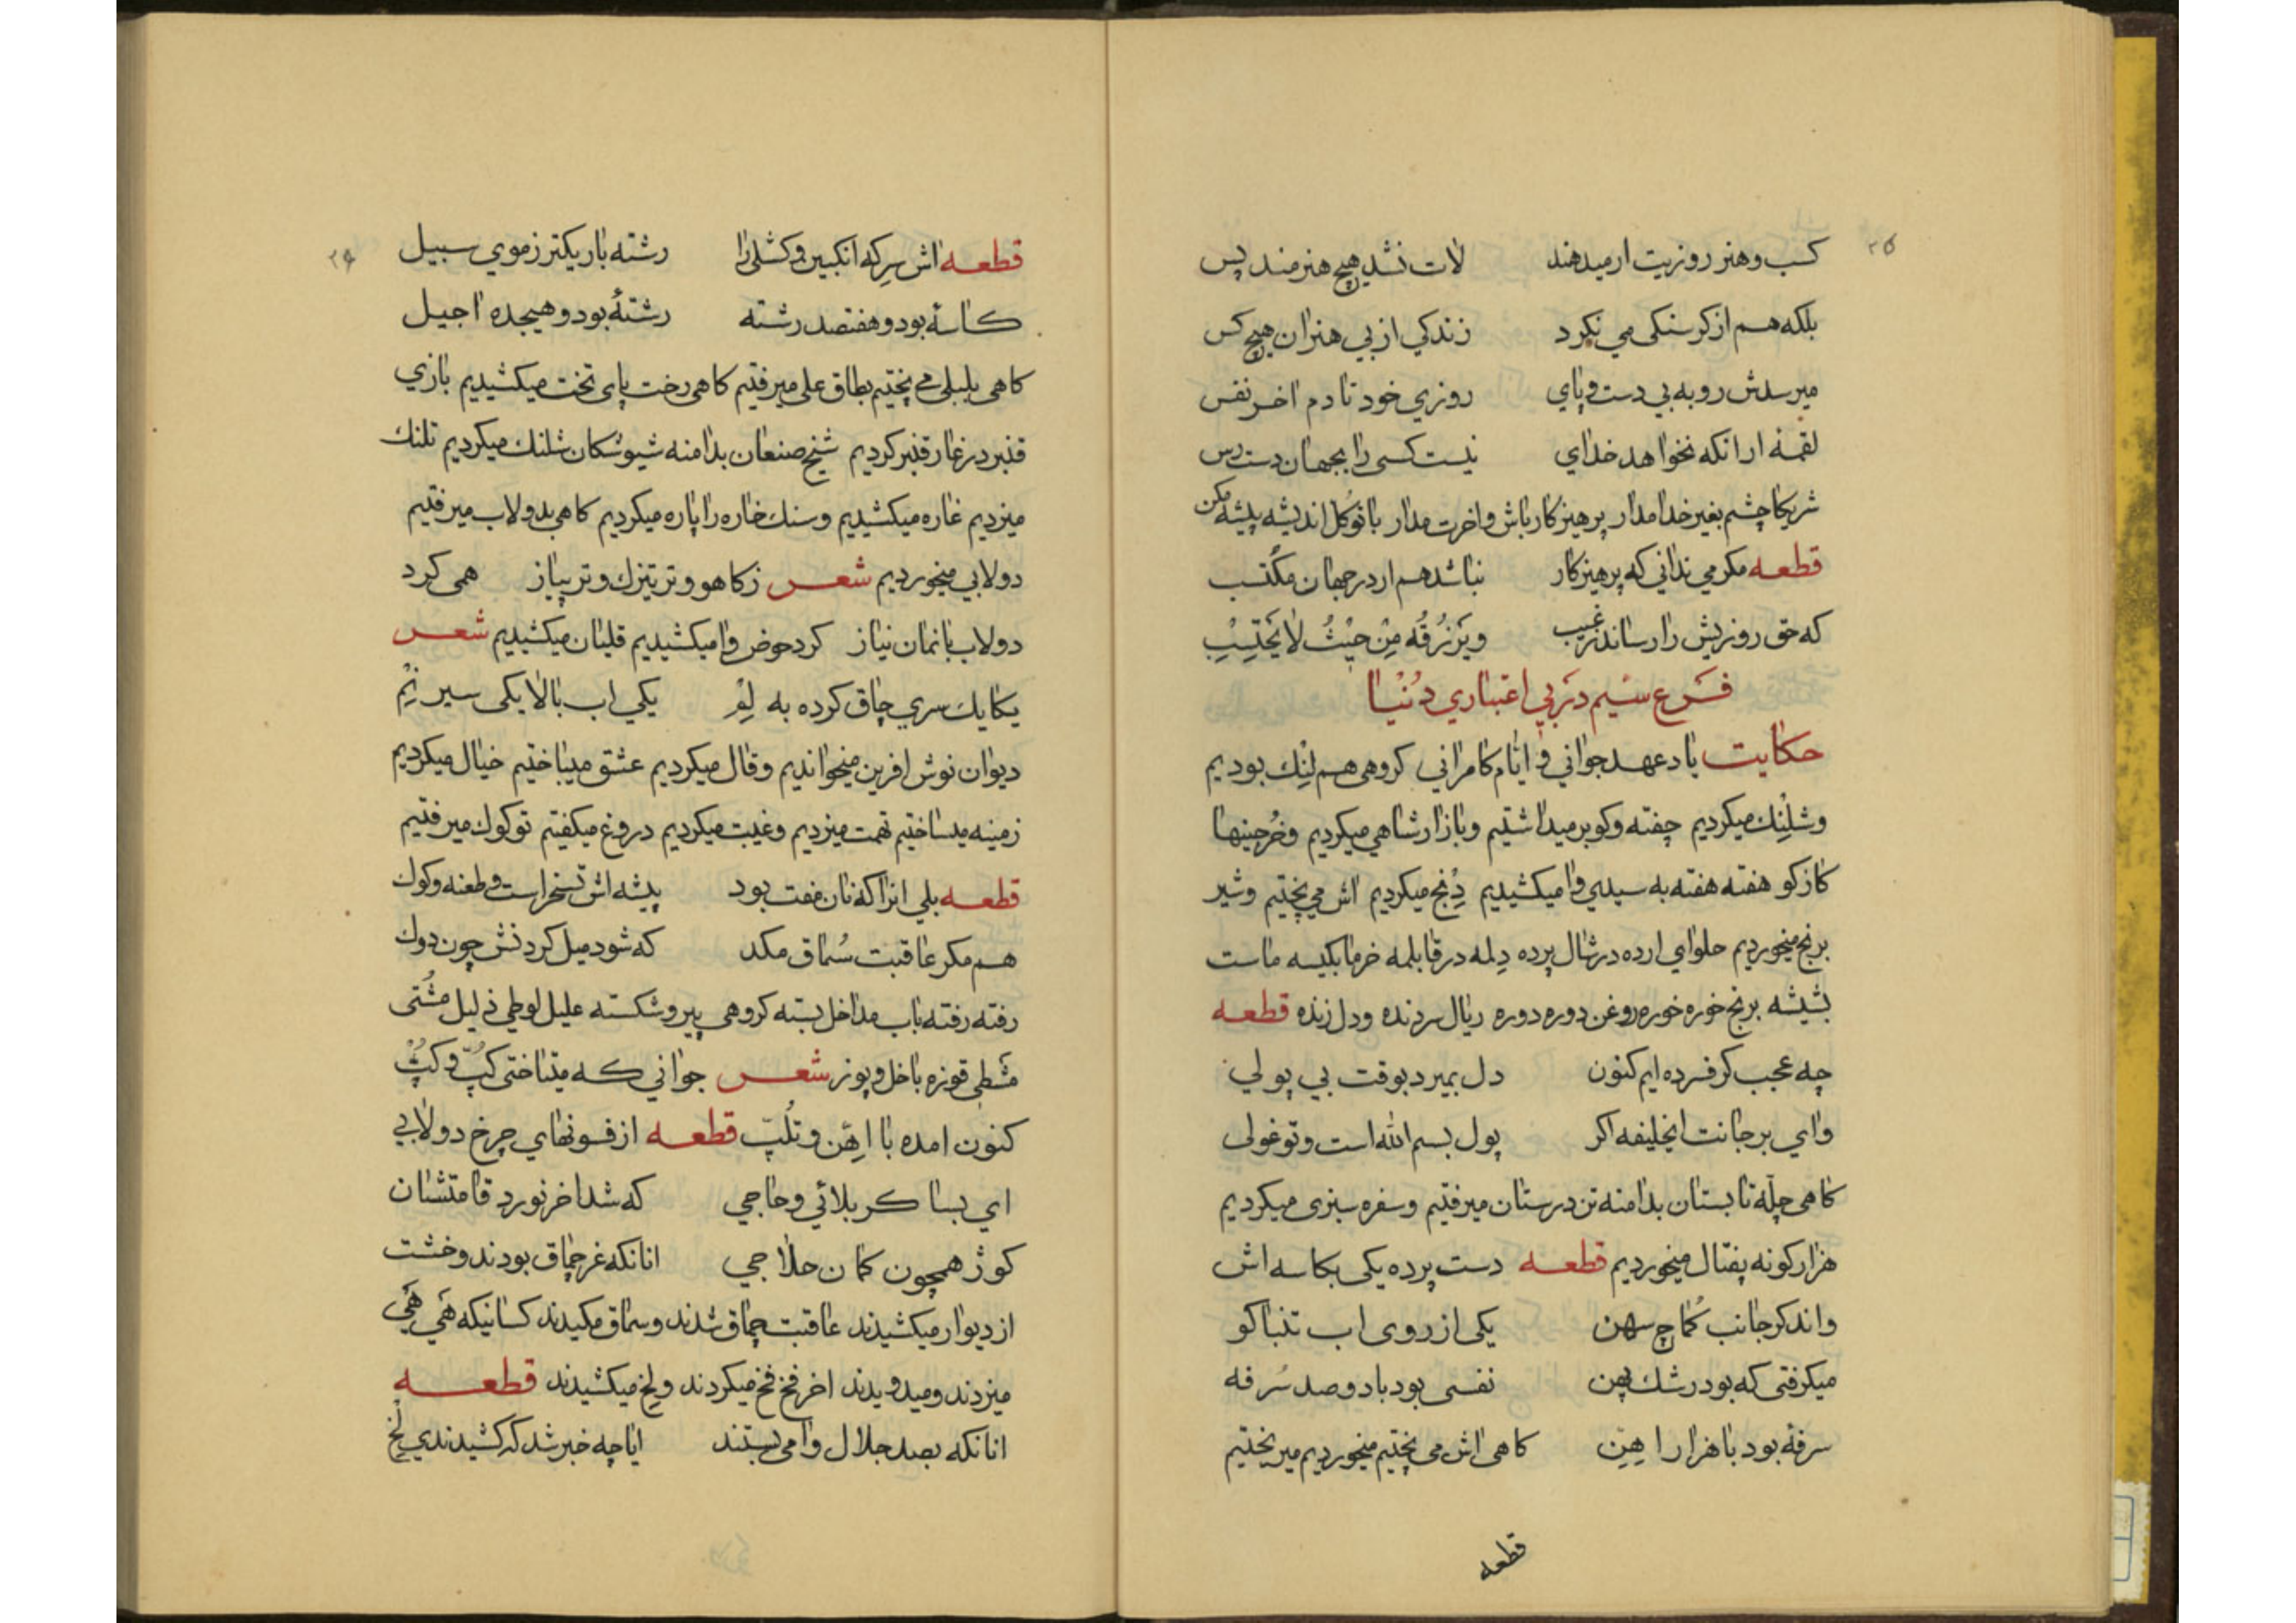 ۲۵
کسب و هنر روزیت ار میدهند لات نشد هیچ هنرمند پس
بلکه هم از کرسنکی می نکرد زندکی از بی هنران هیچ کس
میرسدش رو به بی دست و پای روزی خود تا دم اخر نفس
لقمه ار انکه نخواهد خدای نیست کسی را بجهان دست رس
شریکا چشم بغیر خدا مدار پرهیزکار باش و اخرت مدار با توکل اندیشه پیشه مکن
قطعه مکر می ندانی که پرهیزکار نباشد هم ار در جهان مکتسب
که حق روزیش را رساند ز غیب وَیَرْزُقُه مِنْ حَیْثُ لا یَحْتَسِبِ
فرع سیم در بی اعتباری دنیا
حکایت یاد عهد جوانی و ایام کامرانی کروهی هم لِنِك بودیم
و شلِنِك میکردیم چفته و کو بر میداشتیم و بازار شاهی میکردیم و خرجینها
کازکو هفته هفته به سیدی وا میکشیدیم دِنج میکردیم اش می پختیم و شیر
برنج میخوردیم حلوای ارده در شال پرده دلمه در قابلمه خرما بکیسه ماست
بشیشه برنج خوره خوره روغن دوره دوره ریال سرزنده و دل زنده قطعه
چه عجب کر فسرده ایم کنون دل بمیرد بوقت بی پولی
وای بر جانت ایخلیفه اکر پول بسم الله است و تو غولی
کاهی چلّه تابستان بدامنه تن درستان میرفتیم و سفره سبزی میکردیم
هزار کونه پفتال میخوردیم قطعه دست پرده یکی بکاسه اش
واند کر جانب کماج سهن یکی از روی اب تنباکو
میکرفتی که بود رشك پهن نفسی بود باد و صد سُرفه
سرفه بود با هزار اهِن کاهی اش می پختیم میخوردیم میریختیم
قطعه
۲۶
قطعه اش سرکه انکبین و کشك را رشته باریکتر ز موی سبیل
کاسهٔ بود و هفتصد رشته رشتهٔ بود و هیجده اجیل
کاهی بلبلی می پختیم بطاق علی میرفتیم کاهی رخت پای تخت میکشیدیم بازی
قنبر در غار قنبر کردیم شیخ صنعان بدامنه شیوشکان شلنك میکردیم تلنك
میزدیم غاره میکشیدیم و سنك خاره را پاره میکردیم کاهی بدولاب میرفتیم
دولابی میخوردیم شعر ز کاهو و تر تیزك و تر پیاز همی کرد
دولاب با نمان نیاز کرد حوض وا میکشیدیم قلیان میکشیدیم شعر
یکایك سری چاق کرده به لِمْ یکی اب بالا یکی سیر نِمْ
دیوان نوش افرین میخواندیم و قال میکردیم عشق میباختیم خیال میکردیم
زمینه میساختیم تهمت میزدیم و غیبت میکردیم دروغ میکفتیم تو کوك میرفتیم
قطعه بلی انرا که نان مفت بود پیشه اش تسخر است و طعنه و کوك
هم مکر عاقبت سُماق مکد که شود میل کردنش چون دوك
رفته رفته باب مداخل بسته کروهی پیر و شکسته علیل لوطی ذلیل مشتی
مشطی قوزه باخل و پوز شعر جوانی که میتاختی کپّ و کپّ
کنون امده با اهِن و تلُپّ قطعه از فسونهای چرخ دولابی
ای بسا کربلائی و حاجی که شد اخر نورد قامتشان
کوژ همچون کمان حلاجی انانکه غر چماق بودند و خشت
از دیوار میکشیدند عاقبت چماق شدند و سماق مکیدند کسانیکه هَی هَی
میزدند و میدویدند اخر فخ فخ میکردند و لخ میکشیدند قطعه
انانکه بصد جلال وا می بستند ایا چه خبر شد که کشیدندی لخ